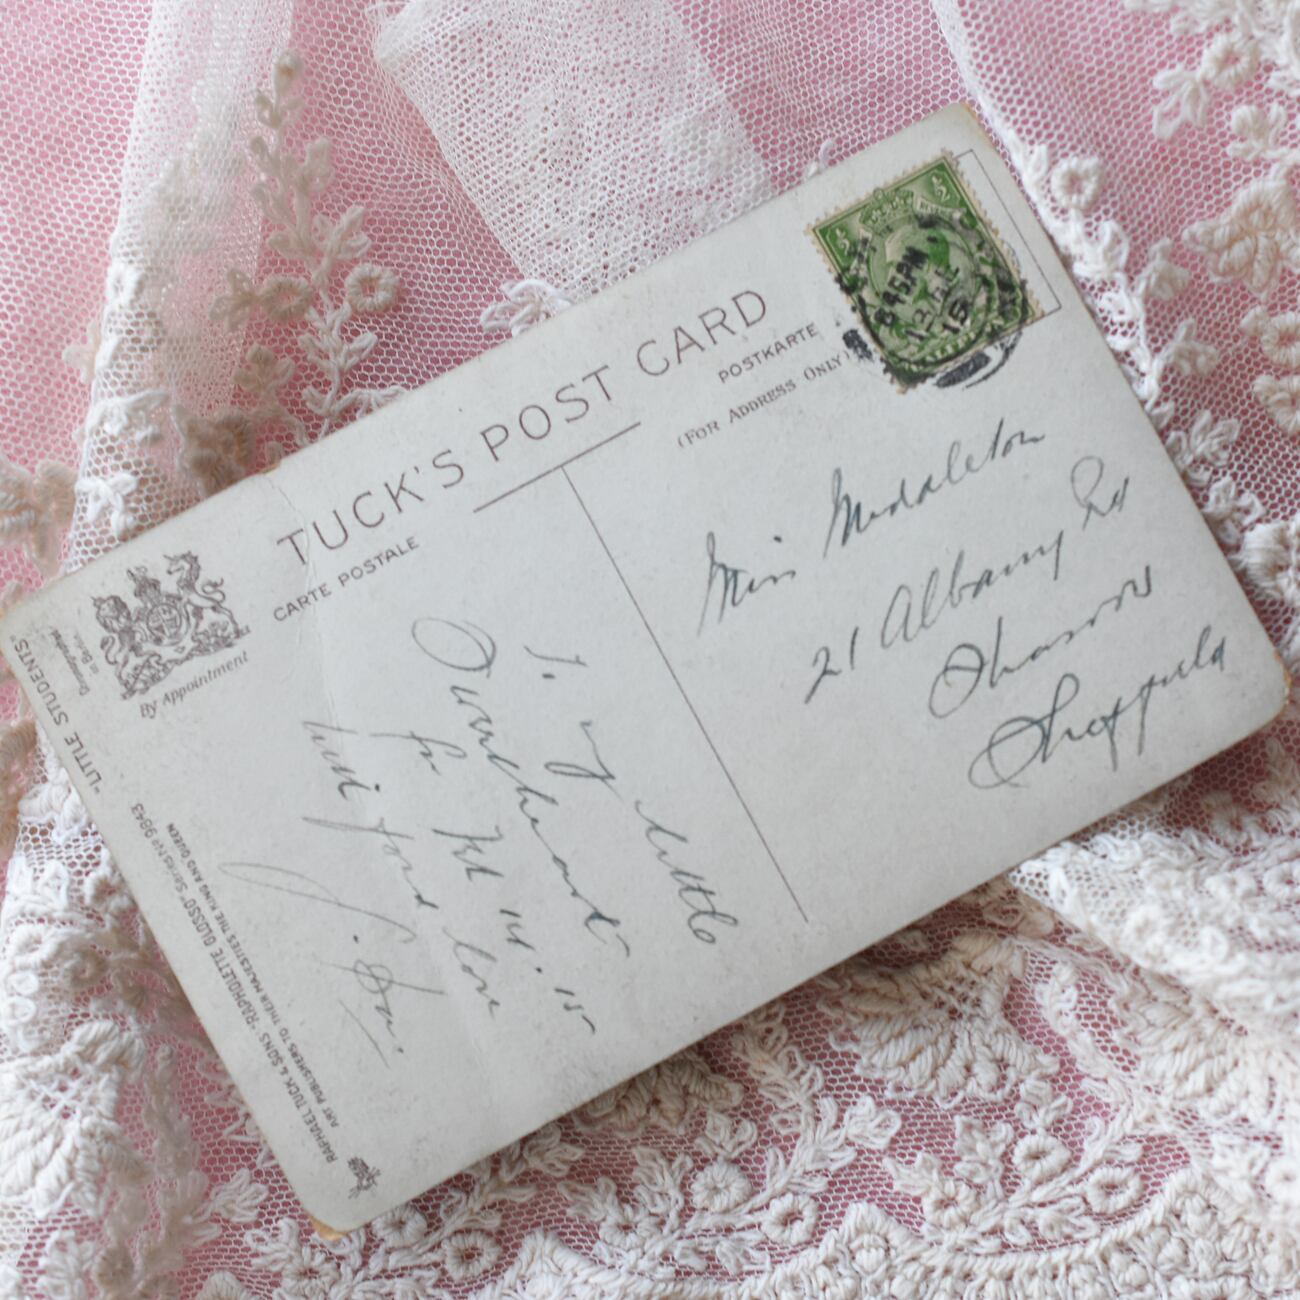 TUCK'S POST CARD
CARTE POSTALE
POSTKARTE
(FOR ADDRESS ONLY)
By Appointment
"LITTLE STUDENTS"
RAPHAEL TUCK & SONS' "RAPHOLETTE GLOSSO" Series No 9843
ART PUBLISHERS TO THEIR MAJESTIES THE KING AND QUEEN
8 45 PM
12
15
To my little
Sweetheart
for Feb 14. 15
with fond love
Miss Middleton
21 Albany Rd
Sharrow
Sheffield